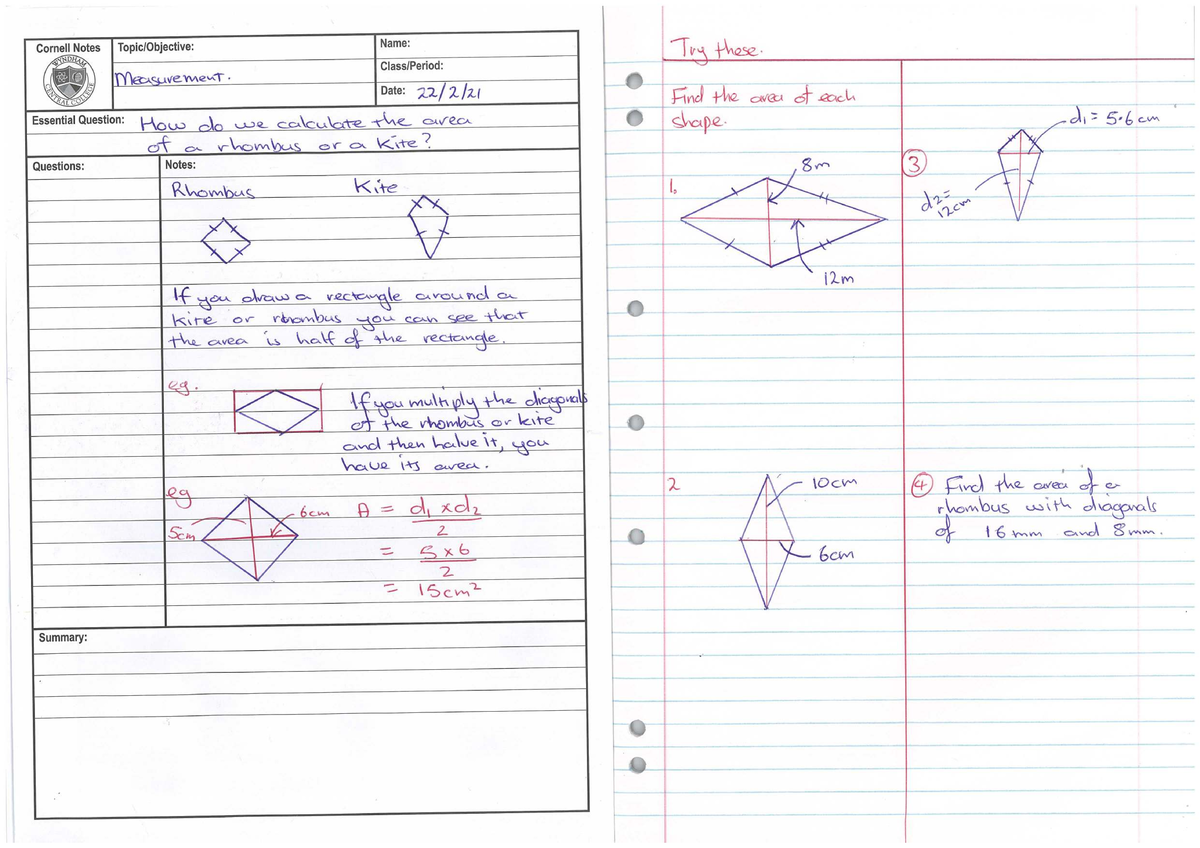 Cornell Notes
WYNDHAM
CENTRAL COLLEGE
Topic/Objective:
Measurement.
Name:
Class/Period:
Date: 22/2/21
Essential Question: How do we calculate the area
of a rhombus or a kite?
Questions:
Notes:
Rhombus Kite
If you draw a rectangle around a
kite or rhombus you can see that
the area is half of the rectangle.
eg.
If you multiply the diagonals
of the rhombus or kite
and then halve it, you
have its area.
eg
5cm
6cm
A = d₁ x d₂
2
= 5 x 6
2
= 15cm²
Summary:
Try these.
Find the area of each
shape.
1.
8m
12m
2
10cm
6cm
3
d₁ = 5.6cm
d₂ =
12cm
4 Find the area of a
rhombus with diagonals
of 16mm and 8mm.